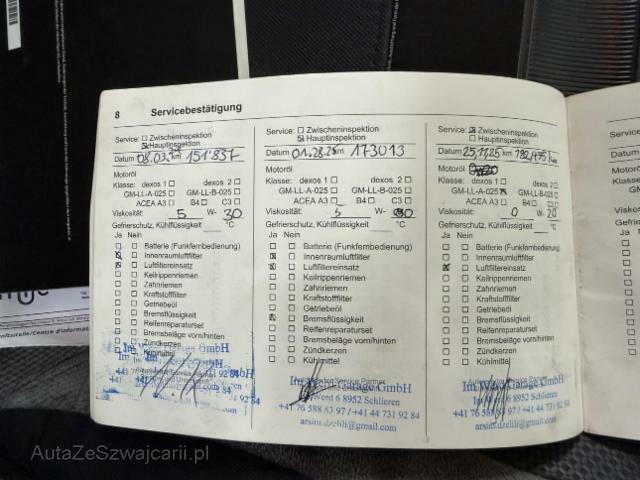 8 Servicebestätigung
Service: Zwischeninspektion
Hauptinspektion
Datum 08.03. km 151'837
Motoröl
Klasse: dexos 1 dexos 2
GM-LL-A-025 GM-LL-B-025
ACEA A3 B4 C3
Viskosität: 5 W- 30
Gefrierschutz, Kühlflüssigkeit °C
Ja Nein
Batterie (Funkfernbedienung)
Innenraumluftfilter
Luftfiltereinsatz
Keilrippenriemen
Zahnriemen
Kraftstofffilter
Getriebeöl
Bremsflüssigkeit
Reifenreparaturset
Bremsbeläge vorn/hinten
Zündkerzen
Kühlmittel
Service: Zwischeninspektion
Hauptinspektion
Datum 01.28.25 km 173013
Motoröl
Klasse: dexos 1 dexos 2
GM-LL-A-025 GM-LL-B-025
ACEA A3 B4 C3
Viskosität: 5 W- 30
Gefrierschutz, Kühlflüssigkeit °C
Ja Nein
Batterie (Funkfernbedienung)
Innenraumluftfilter
Luftfiltereinsatz
Keilrippenriemen
Zahnriemen
Kraftstofffilter
Getriebeöl
Bremsflüssigkeit
Reifenreparaturset
Bremsbeläge vorn/hinten
Zündkerzen
Kühlmittel
Service Partner
Im Werd Garage GmbH
Im Werd 6 8952 Schlieren
+41 76 588 83 97 / +41 44 731 92 84
arsim.dzelili@gmail.com
Service: Zwischeninspektion
Hauptinspektion
Datum 25,11,25 km 182,475 km
Motoröl
Klasse: dexos 1 dexos 2
GM-LL-A-025 GM-LL-B-025
ACEA A3 B4 C3
Viskosität: 0 W- 20
Gefrierschutz, Kühlflüssigkeit °C
Ja Nein
Batterie (Funkfernbedienung)
Innenraumluftfilter
Luftfiltereinsatz
Keilrippenriemen
Zahnriemen
Kraftstofffilter
Getriebeöl
Bremsflüssigkeit
Reifenreparaturset
Bremsbeläge vorn/hinten
Zündkerzen
Kühlmittel
Im Werd Garage GmbH
Im Werd 6 8952 Schlieren
+41 76 588 83 97 / +41 44 731 92 84
arsim.dzelili@gmail.com
AutaZeSzwajcarii.pl